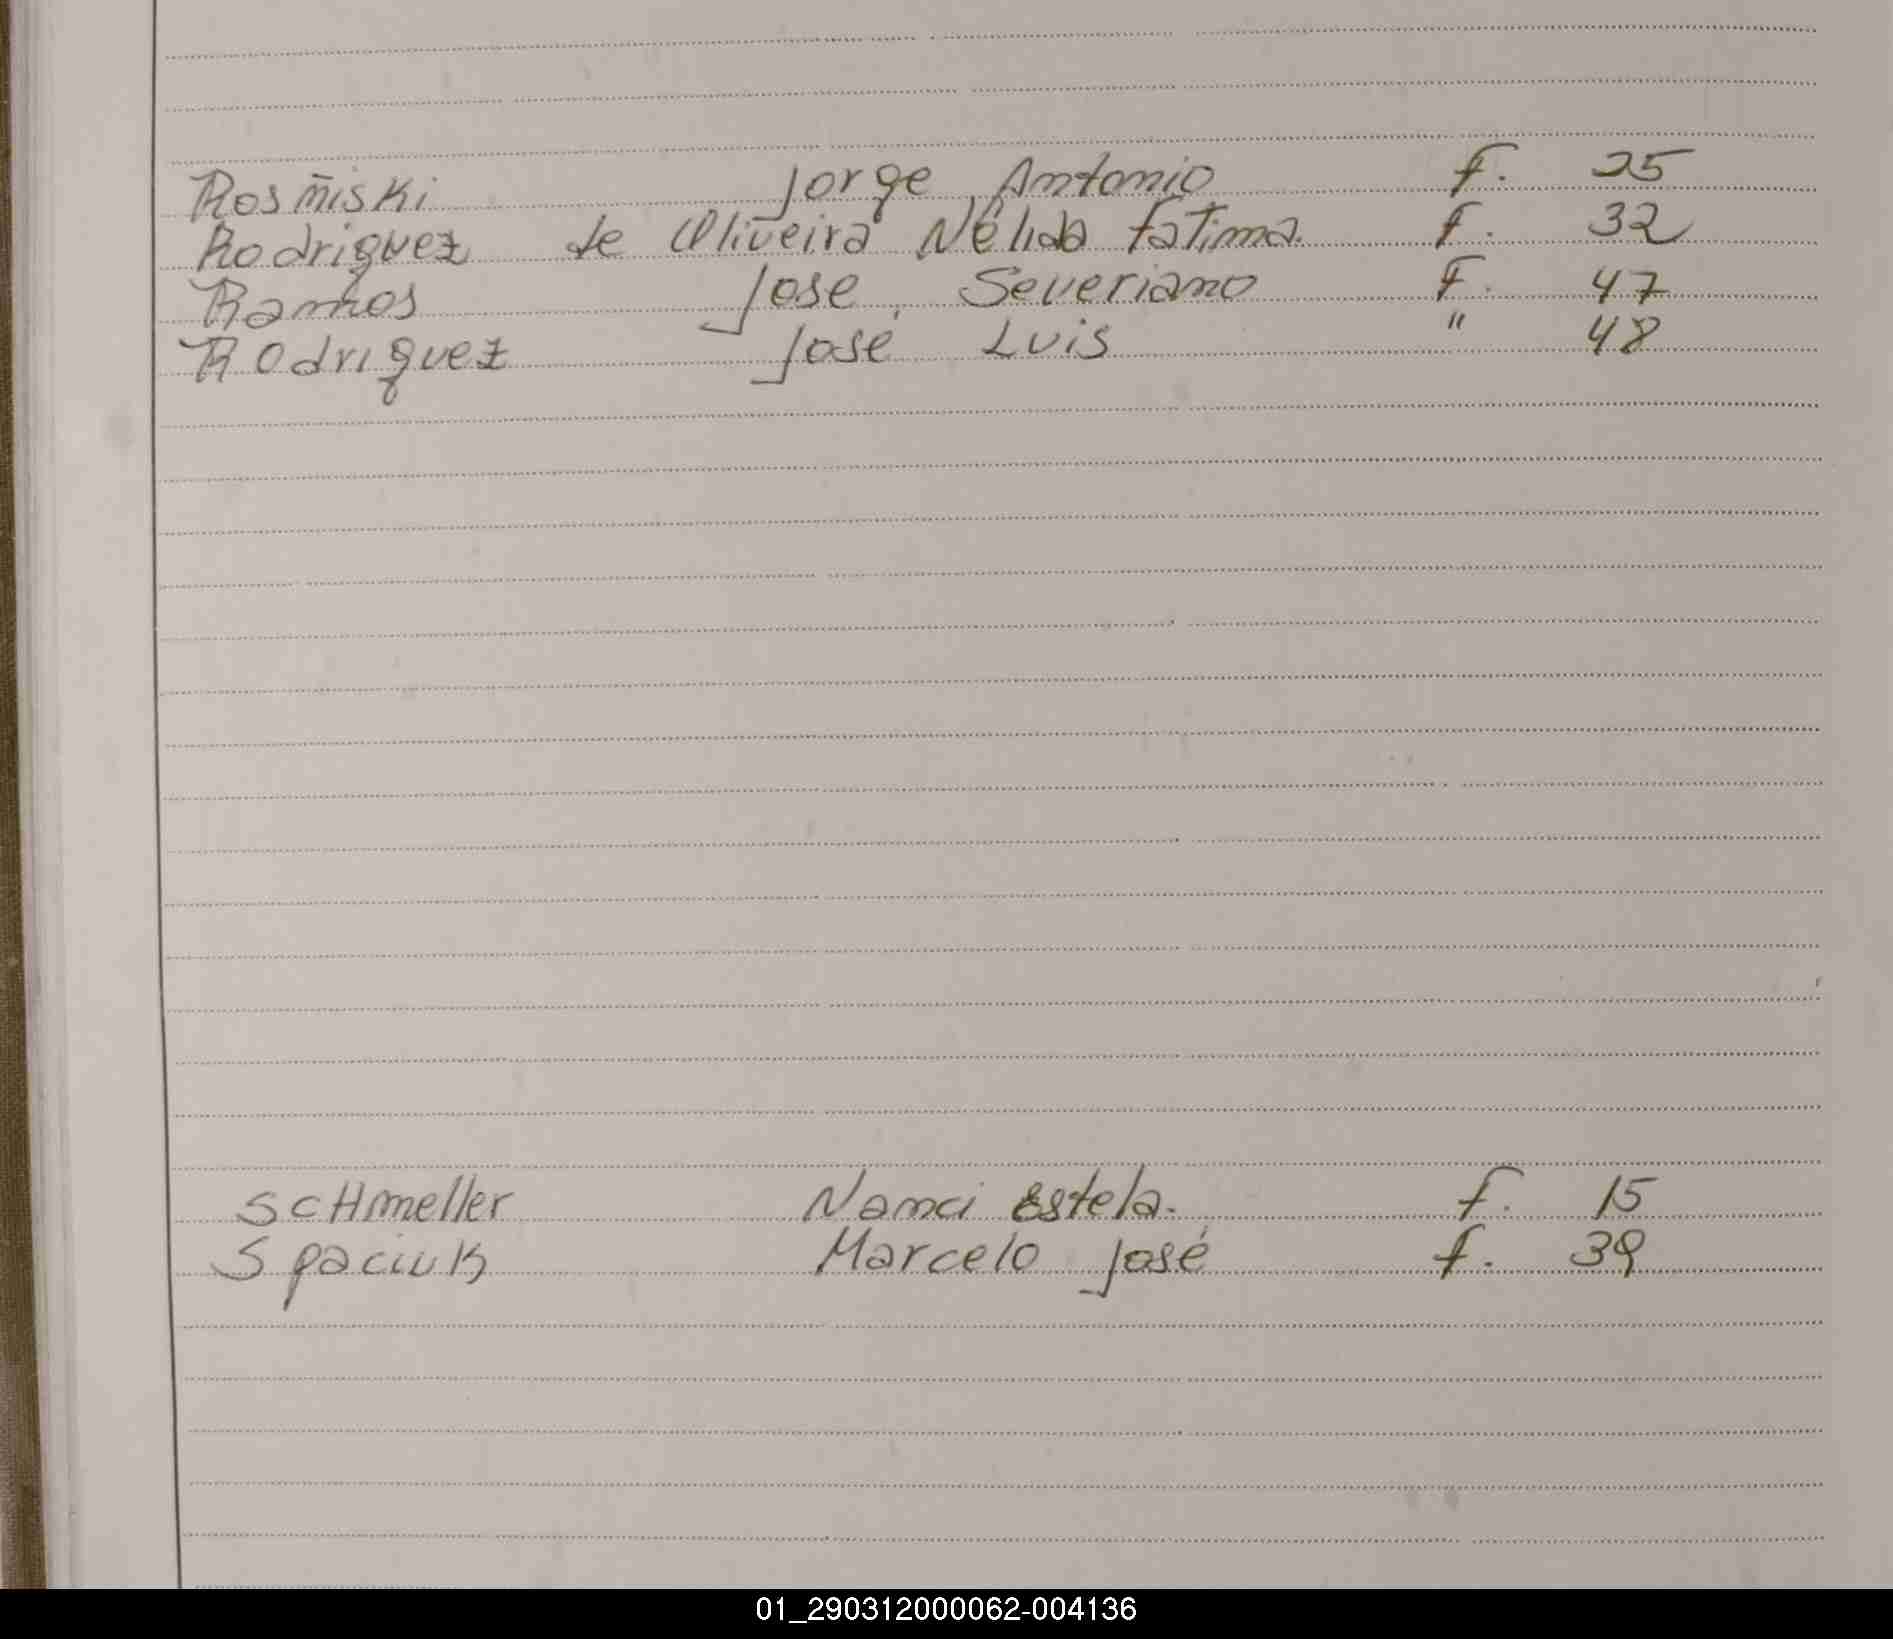 Rosñiski Jorge Antonio f. 25
Rodriguez de Oliveira Nélida Fatima. f. 32
Ramos Jose Severiano F. 47
Rodriguez José Luis " 48
ScHmeller Nanci Estela. f. 15
Spaciuk Marcelo José f. 39
01_290312000062-004136